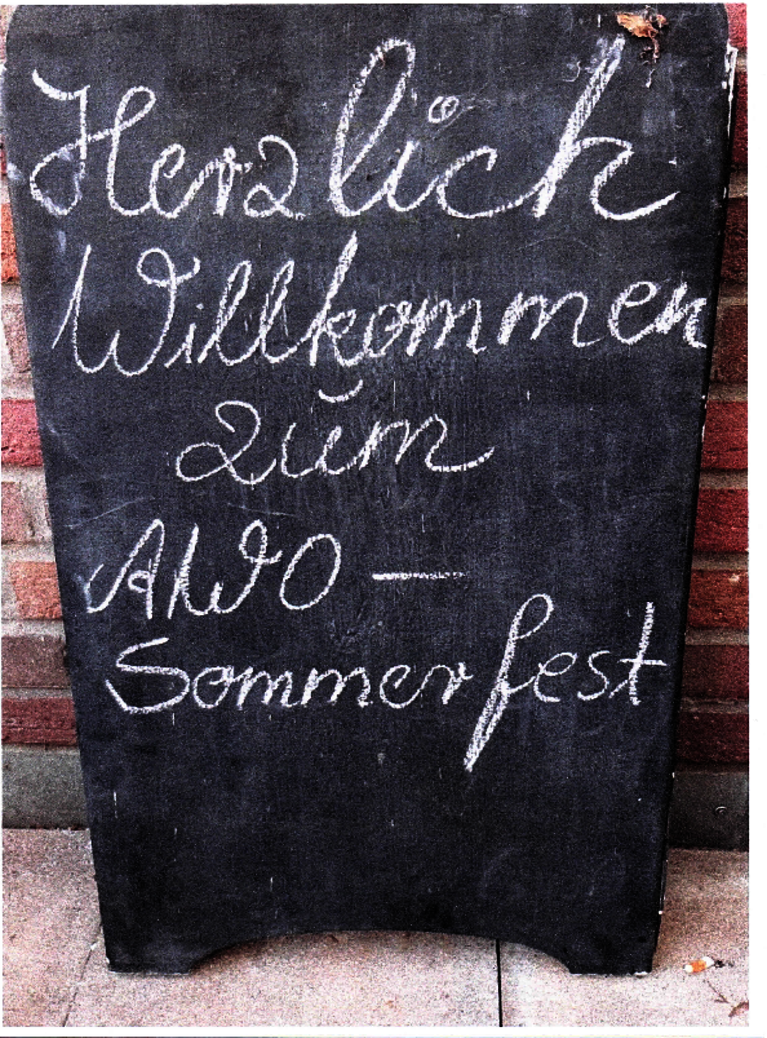 Herzlich
Willkommen
zum
AWO –
Sommerfest